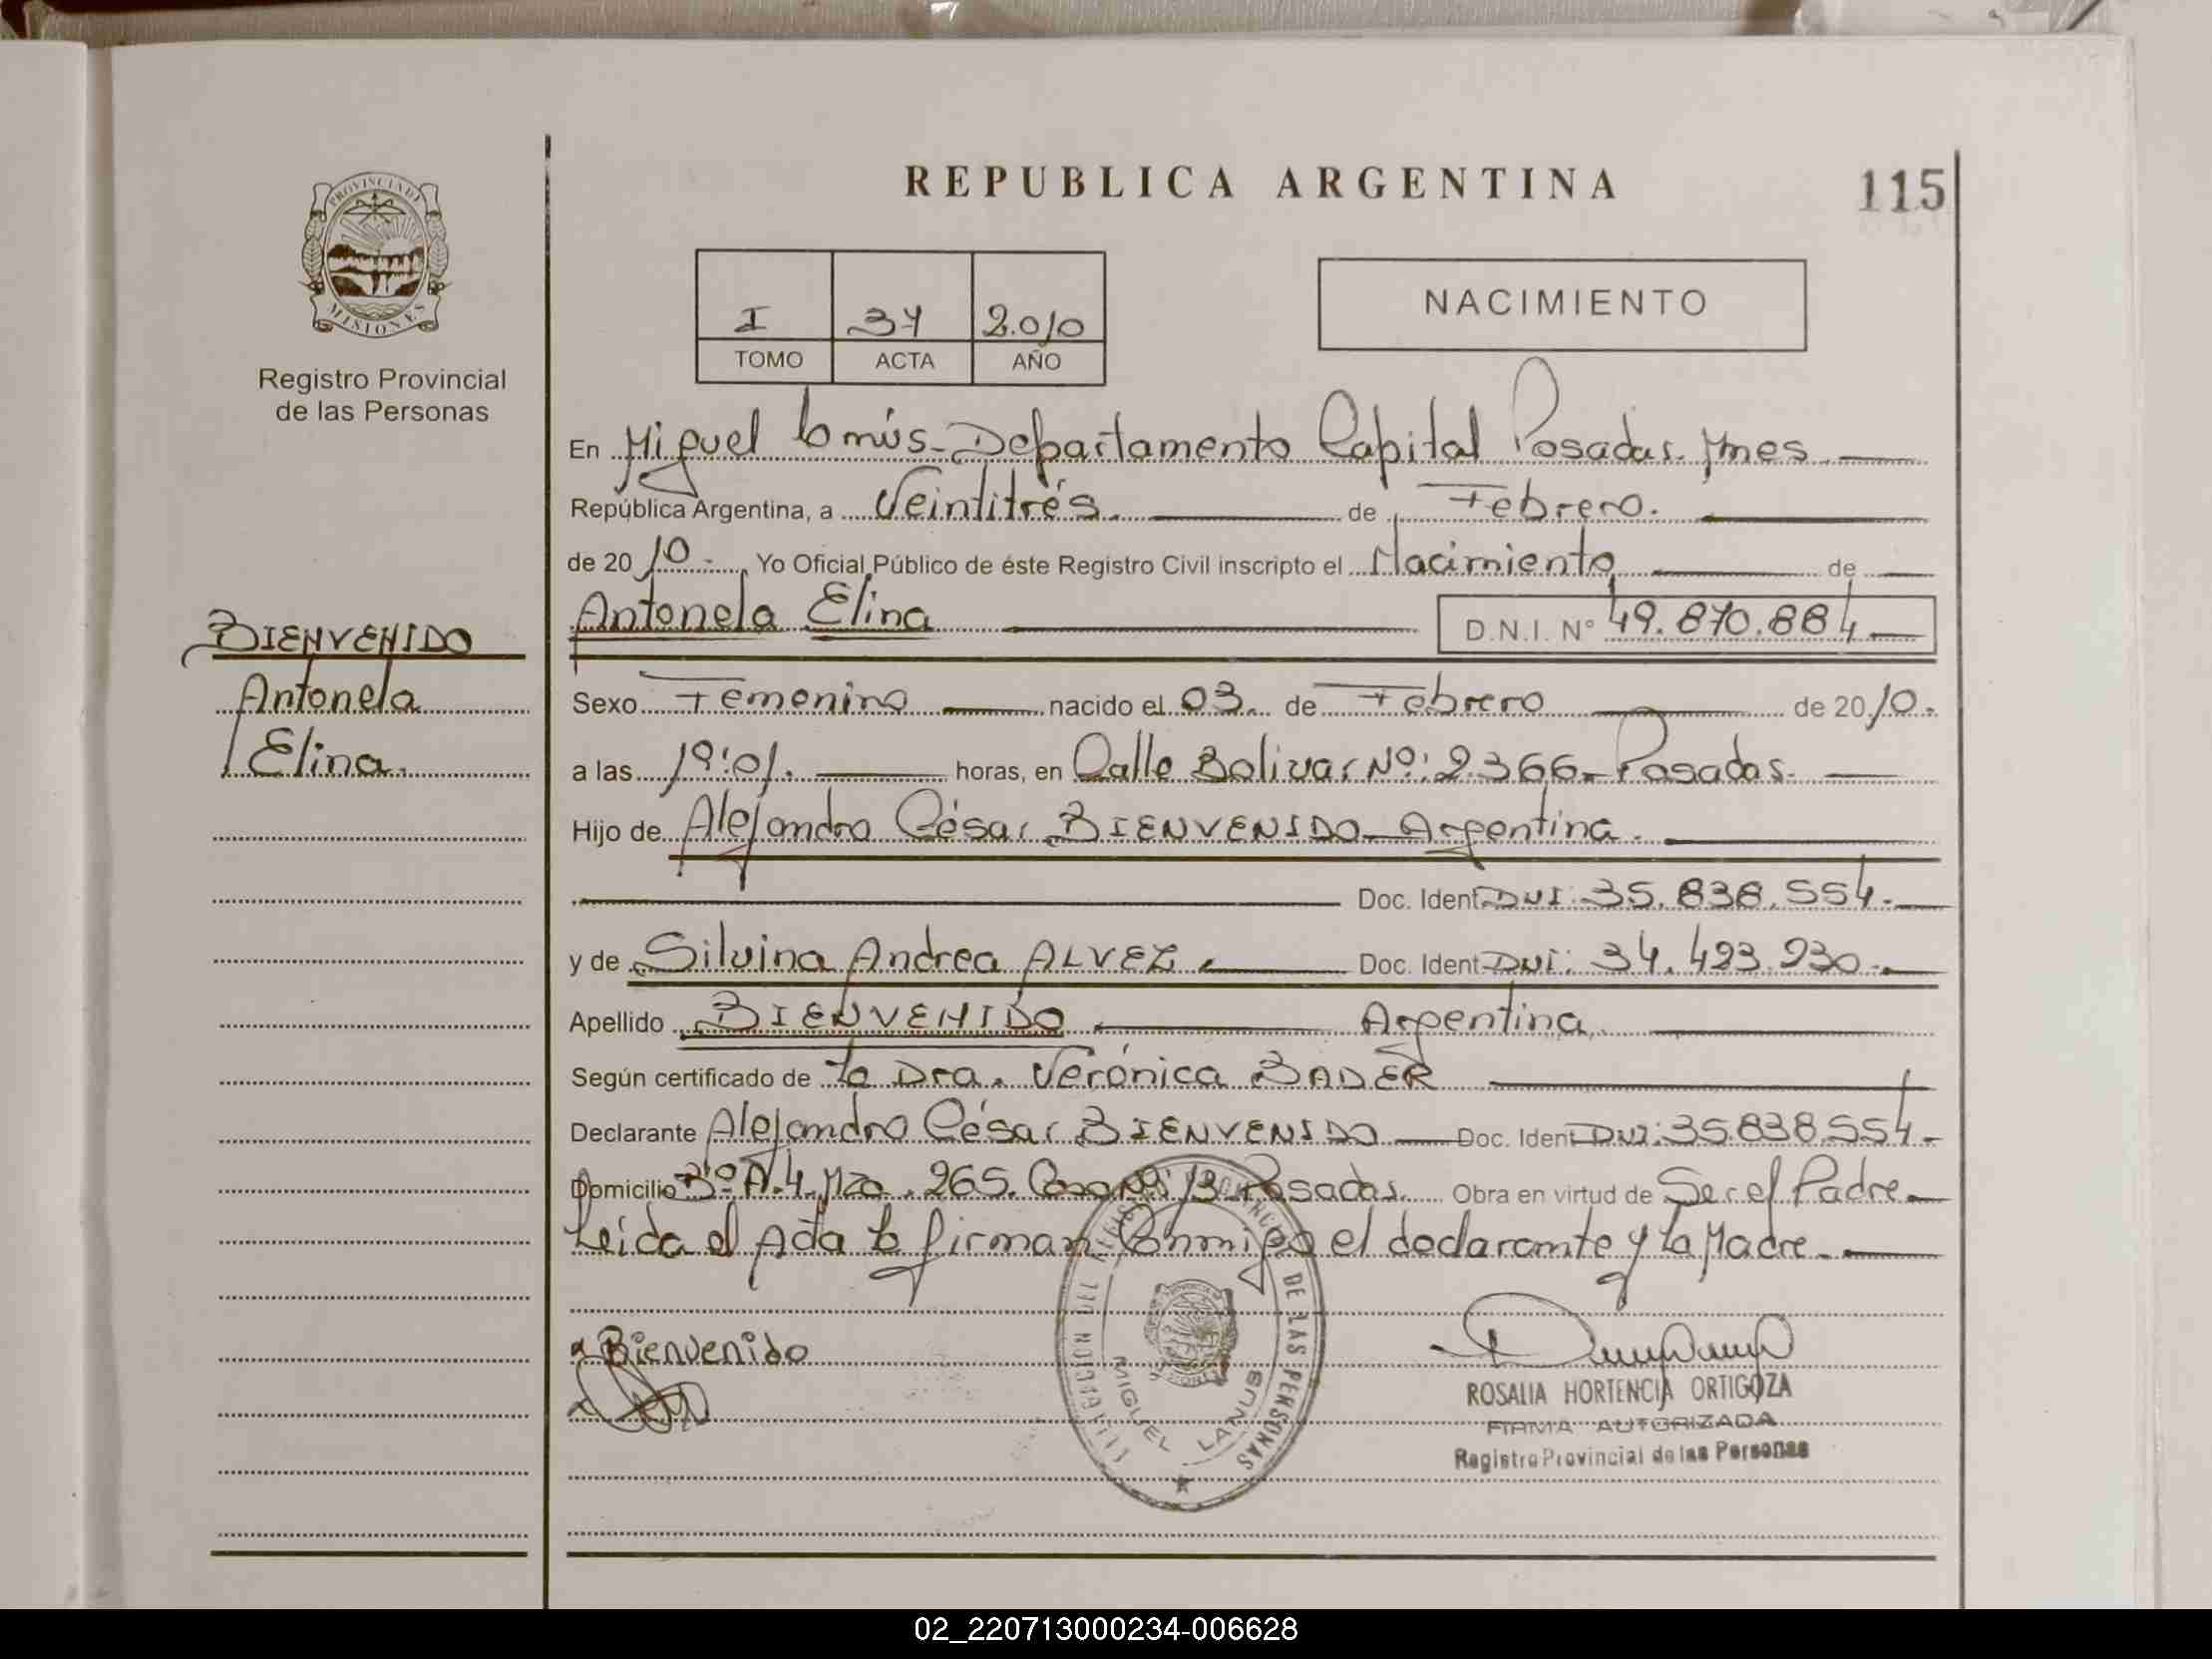 REPUBLICA ARGENTINA
115
PROVINCIA DE
MISIONES
Registro Provincial
de las Personas
I 37 2.010
TOMO ACTA AÑO
NACIMIENTO
En Miguel Lanús-Departamento Capital Posadas. Mnes
República Argentina, a Veintitrés. de Febrero.
de 2010 Yo Oficial Público de éste Registro Civil inscripto el Nacimiento de
Antonela Elina D.N.I. N° 49.870.884
BIENVENIDO
Antonela
Elina.
Sexo Femenino nacido el 03 de Febrero de 2010.
a las 19:01. horas, en Calle Bolivar Nº: 2366-Posadas.
Hijo de Alejandro César BIENVENIDO-Argentina.
Doc. Ident DNI: 35.838.554.
y de Silvina Andrea ALVEZ. Doc. Ident DNI: 34.493.930.
Apellido BIENVENIDO Argentina
Según certificado de la Dra. Verónica BADER
Declarante Alejandro César BIENVENIDO Doc. Ident DNI: 35.838.554.
Domicilio Bº A.4. Mza. 265. Casa Nº: 13-Posadas. Obra en virtud de Ser el Padre
Leida el Acta la firman Conmigo el declarante y la Madre.
Bienvenido
DE LAS PERSONAS
MIGUEL LANUS
ROSALIA HORTENCIA ORTIGOZA
FIRMA AUTORIZADA
Registro Provincial de las Personas
02_220713000234-006628